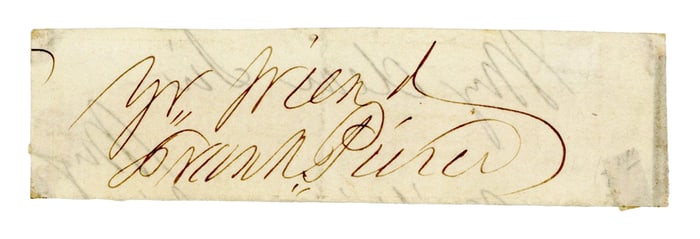 Yr friend
Frank. Pierce